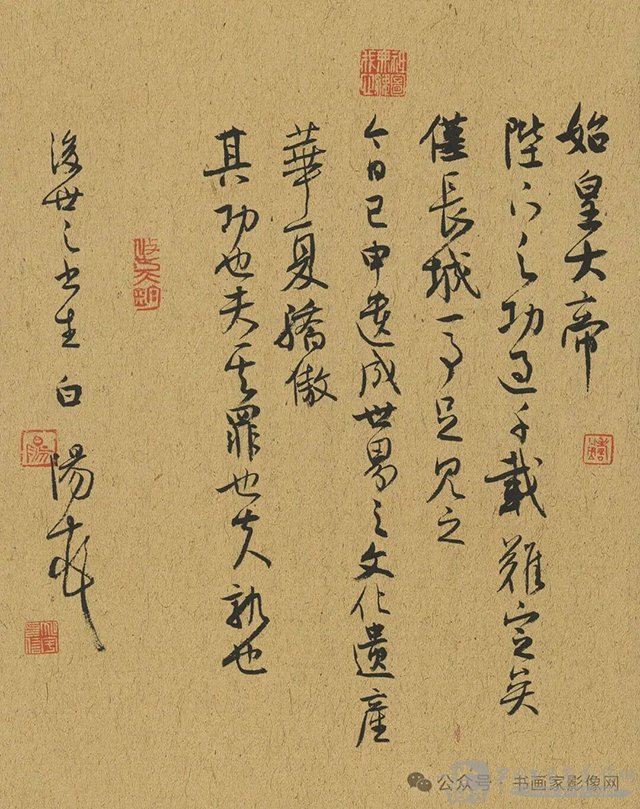 始皇大帝
陛下之功過千載難定矣
僅長城一事足見之
今日已申遺成世界之文化遺產
華夏驕傲
其功也夫其罪也夫孰也
後世之書生白陽
公众号 · 书画家影像网